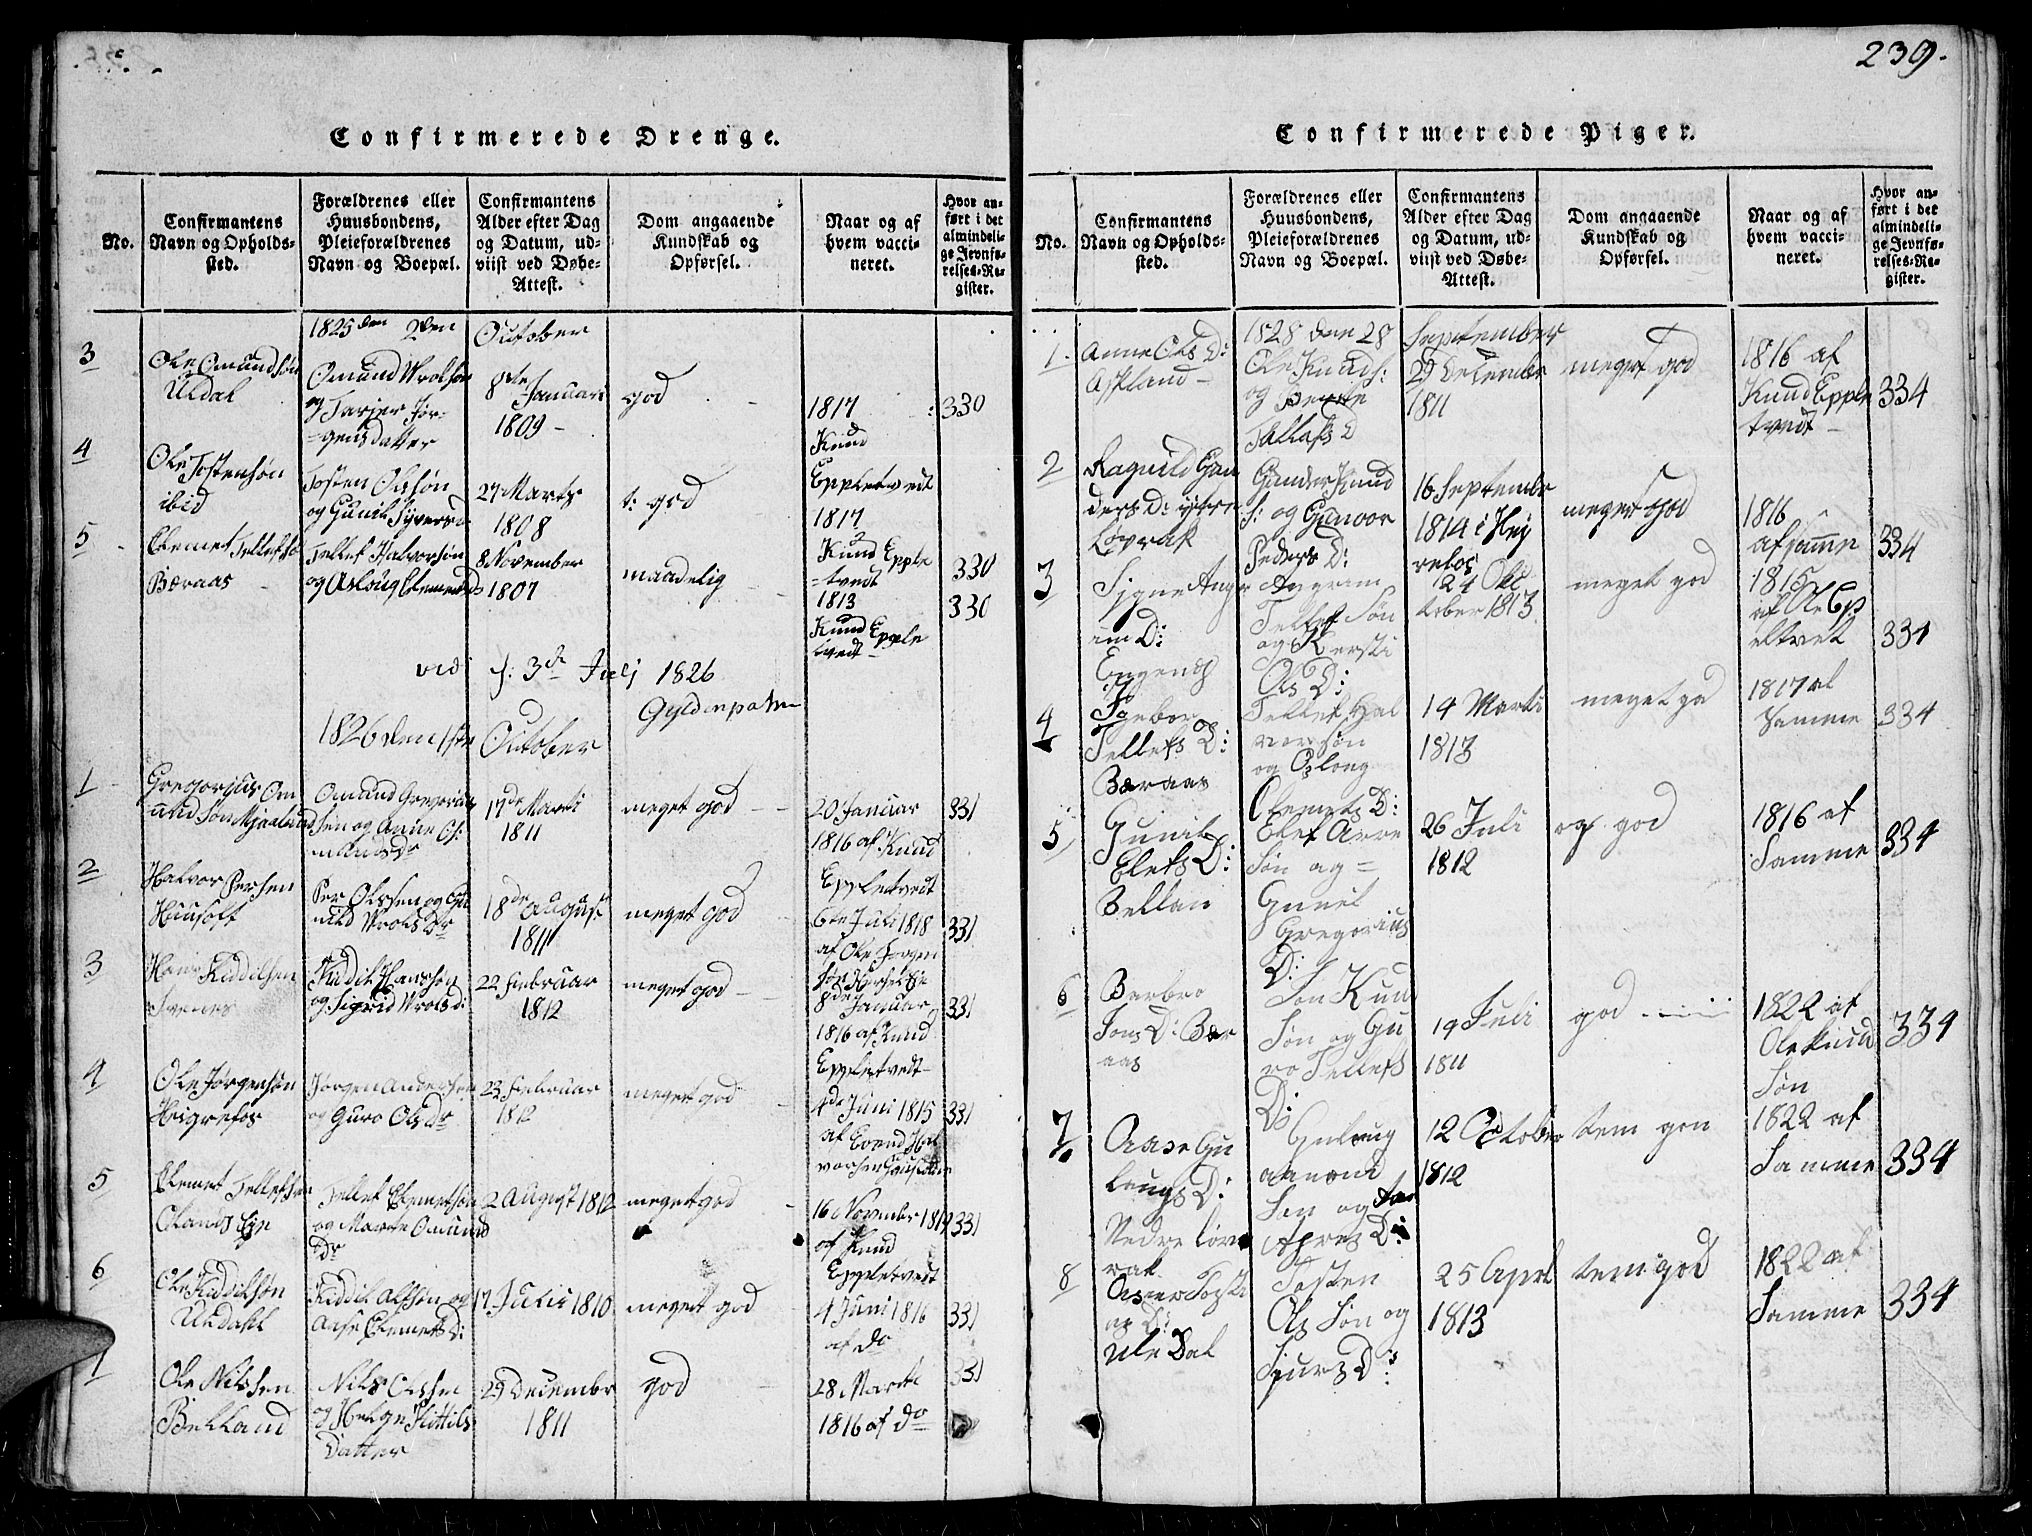 239.
Confirmerede Drenge.
No.
Confirmantens
Navn og Opholds-
sted.
Forældrenes eller
Huusbondens,
Pleieforældrenes
Navn og Boepæl.
Confirmantens
Alder efter Dag
og Datum, ud-
viist ved Døbe-
Attest.
Dom angaaende
Kundskab og
Opførsel.
Naar og af
hvem vacci-
neret.
Hvor an-
ført i det
almindeli-
ge Jevnfø-
relses-Re-
gister.
1825 den 2den October
3
Ole Omundsøn
Uldal
Omund Wrolsøn
og Tarjer Jør-
=gensdatter
8de Januari
1809 -
god
1817
Knud
Eppletvedt
330
4
Ole Tostensøn
ibid
Tosten Olssøn
og Gunil Syversd
27 Marts
1808
t: god
1817
Knud Epple
=tvedt
330
5
Clemet Tellefsø
Bæraas
Tellef Halvorsøn
og Asloug Clemetsd
8 November
1807
maadelig
1813
Knud Epple
tvedt
330
vid s: 3d Julj 1826
Gyldenpalm
1826 den 1ste October
1
Gregorius Om
und Søn Mjaalund
Omund Gregorius
sen og Anne Os:
munds Dr
17de Marti
1811
meget god
20 Januar
1816 af Knud
Eppletvedt
331
2
Halvor Persen
Huusoft
Per Olssen og Gu
nild Wrols Dr
18de August
1811
meget god
6te Juli 1818
af Ole Jorgen
søn
331
3
Hans Kiddilsen
Ivenes
Kiddil Hanssøn
og Sigrid Wrols D:
22 Februar
1812
meget god
8de Januar
1816 af Knud
Eppletvedt
331
4
Ole Jørgensøn
Heigrefos
Jørgen Andersøn
og Guro Ols dr
23 Februar
1812
meget god
4de Juni 1815
af Evend Hal
vorsen
331
5
Clemet Tellefsen
Olands Eje
Tellef Clemetsøn
og Marte Omund
Dr
2 August 1812
meget god
16 November 1812
af Knud
Eppletvedt
331
6
Ole Kiddilsøn
Uldahl
Kiddil Olssøn og
Aase Clemets D:
17 Julii 1810
meget god
4 Juni 1816
af do
331
7
Ole Nilssen
Belland
Nils Olssen
og Helge Kittils
Datter
29 December
1811
god
28 Marti
1816 af do
331
Confirmerede Piger.
No.
Confirmantens
Navn og Opholds-
sted.
Forældrenes eller
Huusbondens,
Pleieforældrenes
Navn og Boepæl.
Confirmantens
Alder efter Dag
og Datum, ud-
viist ved Døbe-
Attest.
Dom angaaende
Kundskab og
Opførsel.
Naar og af
hvem vacci-
neret.
Hvor an-
ført i det
almindeli-
ge Jevnfø-
relses-Re-
gister.
1828 den 28 September
1.
Anne Ols D:
Askland -
Ole Knuds:
og Berte
Tallafs D
29 Decembr
1811
meget god
1816 af
Knud Epple
tvedt -
334
2
Ragnild Gun
ders D: ystre
Løvrak
Gunder Knud
S: og Gunvor
Peders D:
16 Septembr
1814 i Hey
refos
meget god
1816
af samme
334
3
Signe Asgr
im D:
Engenes
Asgrim
Tellef Søn
og Kersti
Ols D:
24 Ok
tober 1813
meget god
1815
af Ole Ep
eltvet
334
4
Igebor
Tellefs D:
Bæraas
Tellef Hal
vorsøn
og Oslong
Clemets D:
14 Marti
1813
meget god
1817 af
Samme
334
5
Gunil
Elefs D:
Bellan
Elef Arne
Søn og =
Gunil
Gregorius
D:
26 Juli
1812
og god
1816 af
Samme
334
6
Berbro
Jons D: Bær
aas
Jon Knu
Søn og Gu
ro Tellefs
D:
19 Juli
1811
god
1822 af
Ole Knud
Søn
334
7
Aase Gu
laugs D:
Nedre Løv
rak
Gulaug
Sen og
D:
12 October
1812
tem gon
1822 af
Samme
334
8
Aase Toste
ns D:
Ule Dal
Tosten
Ols Søn og
Sjurs D:
25 Aprl
1813
tem god
1822 af
Samme
334